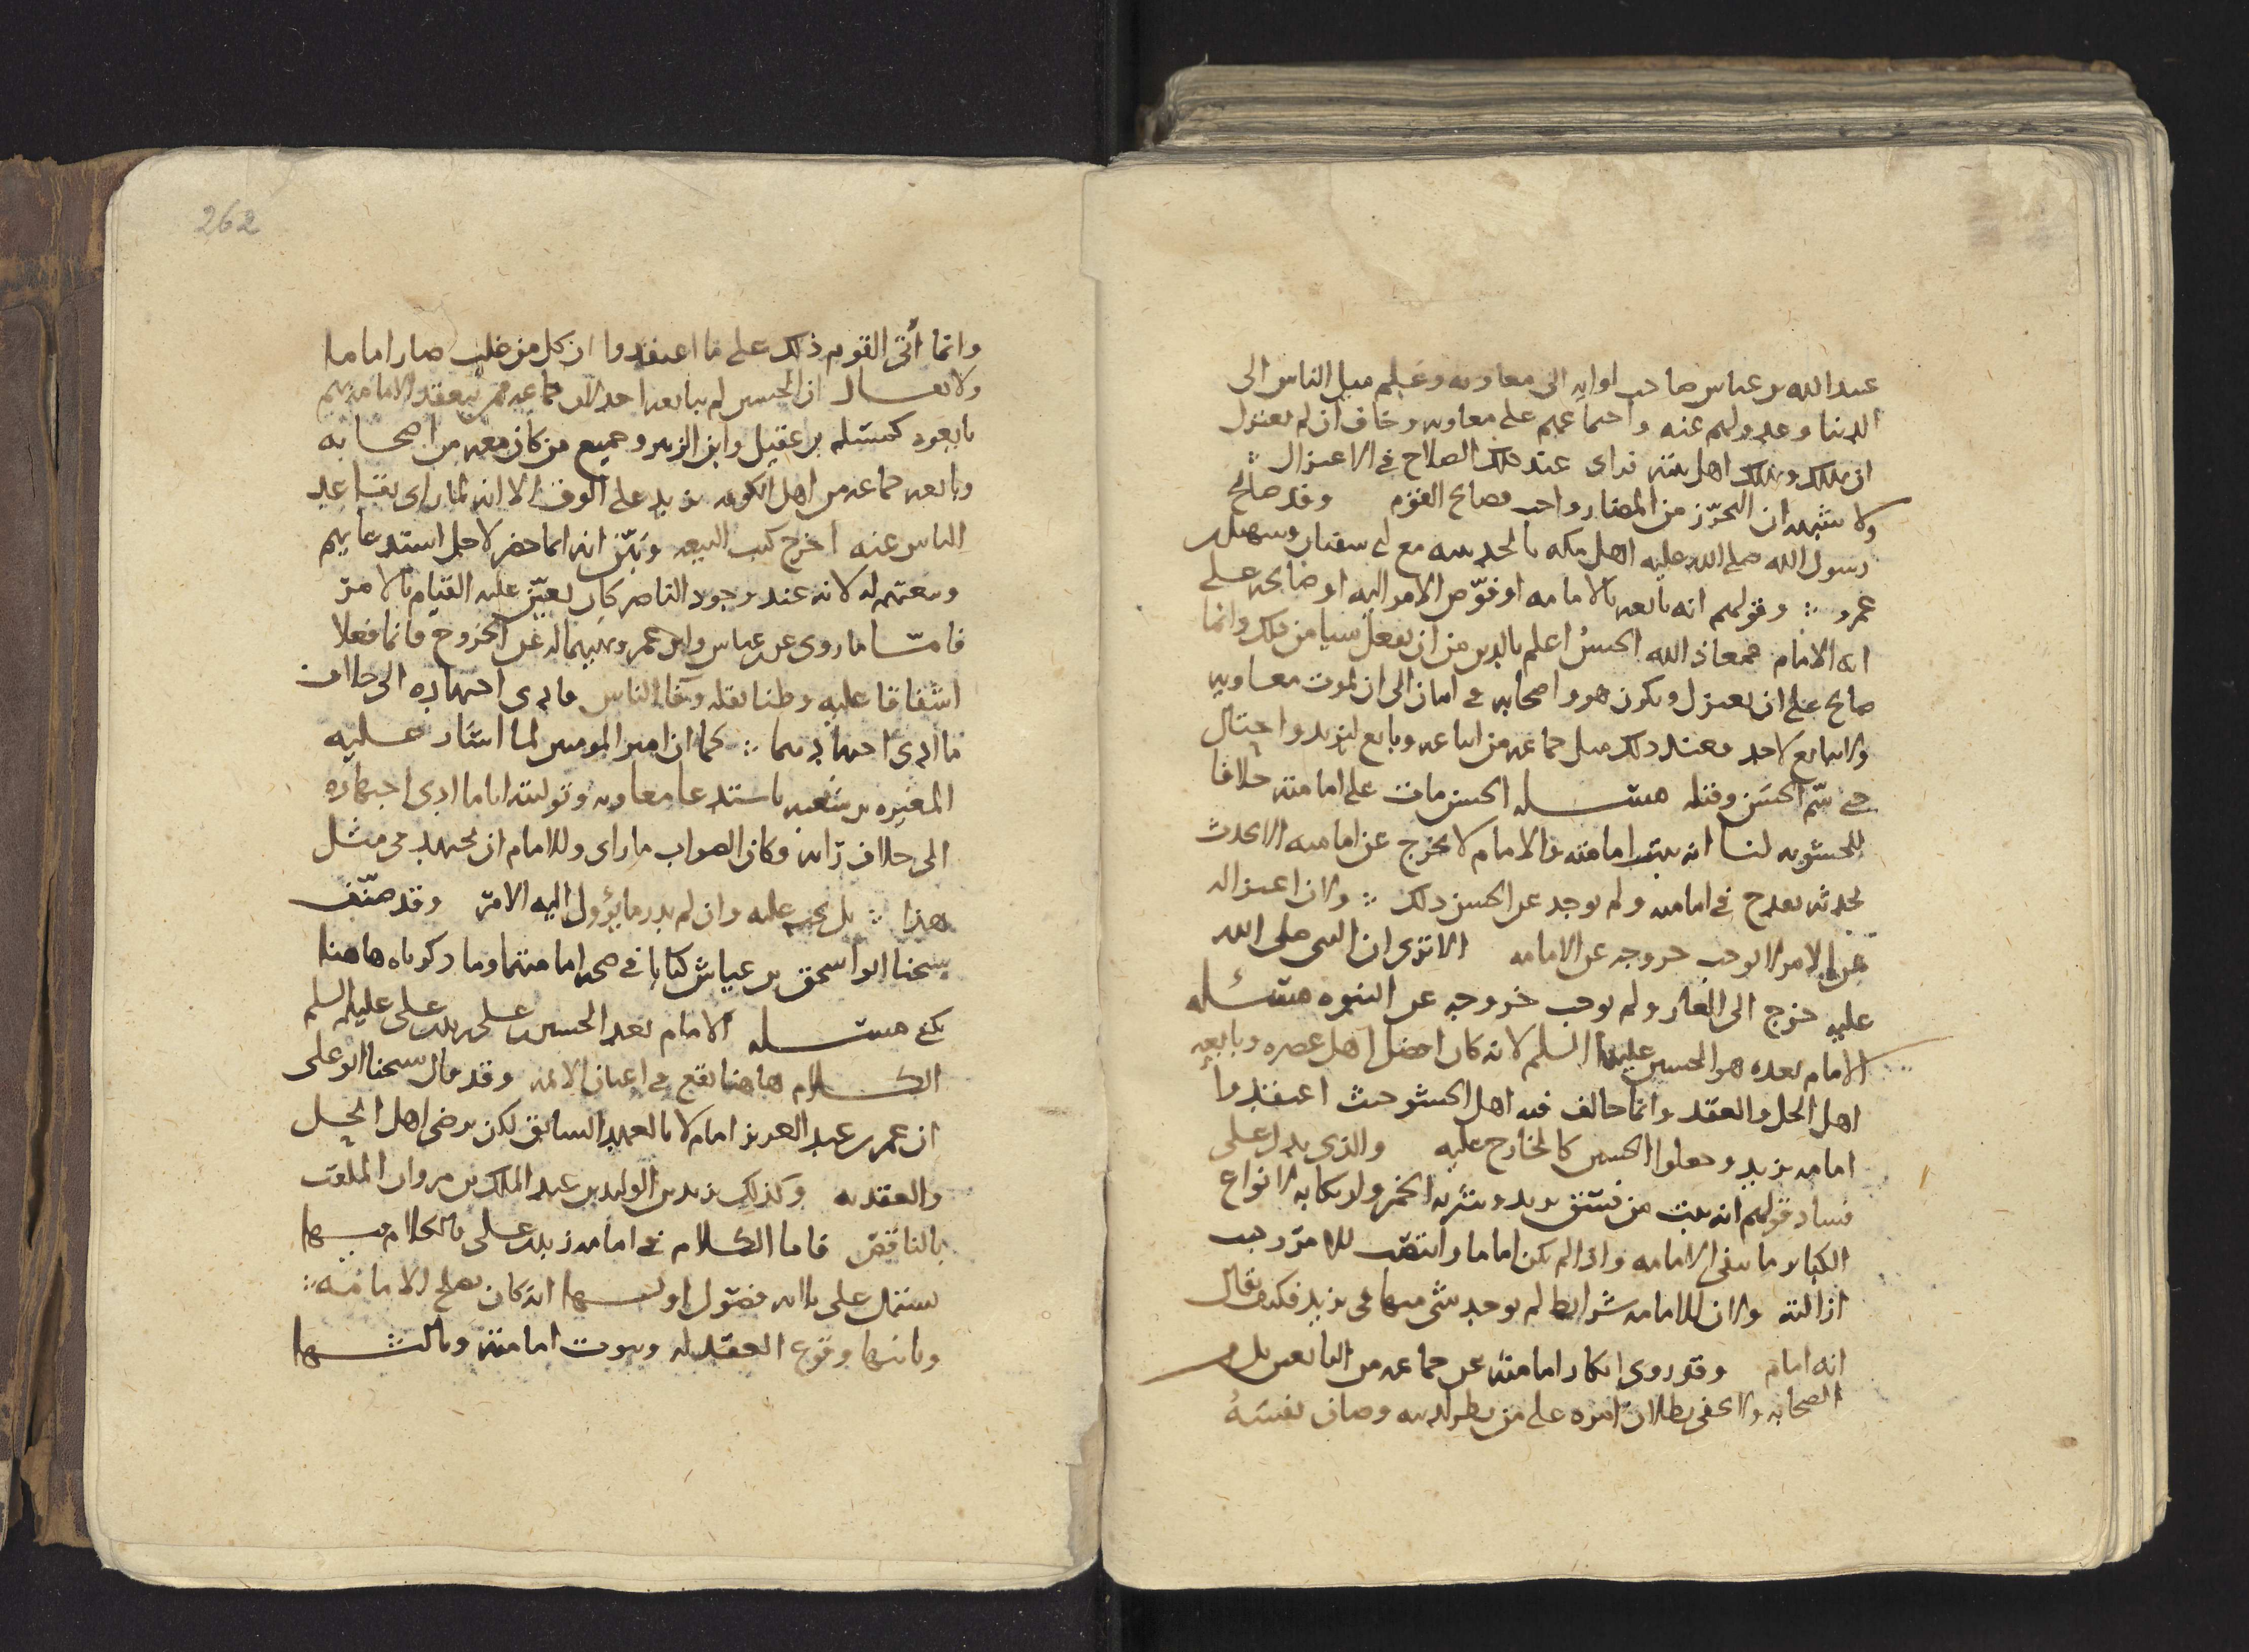 عبد الله بن عباس صاحب لوايه الى معاويه وعلم ميل الناس الى
الدنيا وعدولهم عنه واجتماعهم على معاويه وخاف ان لم يعتزل
ان يهلك ويهلك اهل بيته فراى عند ذلك الصلاح في الاعتزال
ولا شبهه ان التحرّز من المضار واجب فصالح القوم وقد صالح
رسول الله صلى الله عليه اهل مكه بالحديبيه مع ابي سفيان وسهيل بن
عمرو وقولهم انه بايعه بالامامه او فوّض الامر اليه او صالحه على
انه الامام فمعاذ الله الحسنُ اعلم بالدين من ان يفعل شيا من ذلك وانما
صالح على ان يعتزل ويكون هو واصحابه في امان الى ان يموت معاويه
ولا يبايع لاحد فعند ذلك قتل جماعه من اتباعه وبايع ليزيد واحتال
حتى سُمّ الحسَن وقتله مسـله الحسن مات على امامته خلافا
للحشويه لنا انه ثبتت امامته والامام لا يخرج عن امامته الا بحدث
يحدثه يقدح في امامته ولم يوجد عن الحسن ذلك ولان اعتزاله
عن الامر لا يوجب خروجه عن الامامه الا ترى ان النبي صلى الله
عليه خرج الى الغار ولم يوجب خروجه عن النبوه مسـئله
الامام بعده هو الحسين عليهما السلم لانه كان افضل اهل عصره وبايعه
اهل الحل والعقد وانما خالف فيه اهل الحشو حيث اعتقدوا
امامه يزيد وجعلوا الحسين كالخارج عليه والذي يدل على
فساد قولهم انه ثبت من فسق يزيد وشربه الخمر وارتكابه لانواع
الكباير ما ينفي الامامه واذا لم يكن اماما وانتصب للامر وجب
ازالته ولان للامامه شرايط لم يوجد شى منها في يزيد فكيف يقال
انه امام وقد روى انكار امامته عن جماعه من التابعين بل من
الصحابه ولا يخفى بطلان امره على من نظر لدينه وصان نفسَهُ
262
وانما أُتى القوم ذلك على ما اعتقدوا ان كل من غلب صار اماما
ولا يقـال ان الحسين لم يبايعه احد لان جماعه ممن تنعقد الامامه بهم
بايعوه كمسلم بن عقيل وابن الزبير وجميع من كان معه من اصحابه
وبايعه جماعه من اهل الكوفه يزيد على الوف الا انه لما راى تقاعد
الناس عنه اخرج كتب البيعه وبَيّن انه انما حضر لاجل استدعايهم
وبيعتهم له لانه عند وجود الناصر كان يتعيّن عليه القيام بالامر
فامّـا ما روى عن ابن عباس وابن عمر ونهيهما له عن الخروج فانما فعلا
اشفاقا عليه وظنا بقله وفاء الناس فادى اجتهاده الى خلاف
ما ادى اجتهادهما كما ان امير المومنين لما اشار عليه
المغيره بن شعبه باستدعا معاويه وتوليته اياما ادى اجتهاده
الى خلاف رايه وكان الصواب ما راى وللامام ان يجتهد في مثل
هذا بل يجب عليه وان لم يدر ما يؤول اليه الامر وقد صنّف
شيخنا ابو اسحق بن عياش كتابا في صحه امامتهما وما ذكرناه هاهنا
يكفى مسـله الامام بعد الحسين زيد بن على عليه السلم
الكـلام هاهنا يقع في اعيان الايمه وقد قال شيخنا ابو على
ان عمر بن عبد العزيز امام لا بالعهد السابق لكن برضى اهل الحل
والعقد به وكذلك يزيد بن الوليد بن عبد الملك بن مروان الملقب
بالناقص فاما الكـلام في امامه زيد بن على فالكلام فيـها
يشتمل على ثلثه فصول اولـها انه كان يصلح للامامه
وثانيها وقوع العقد له وثبوت امامته وثالثـها